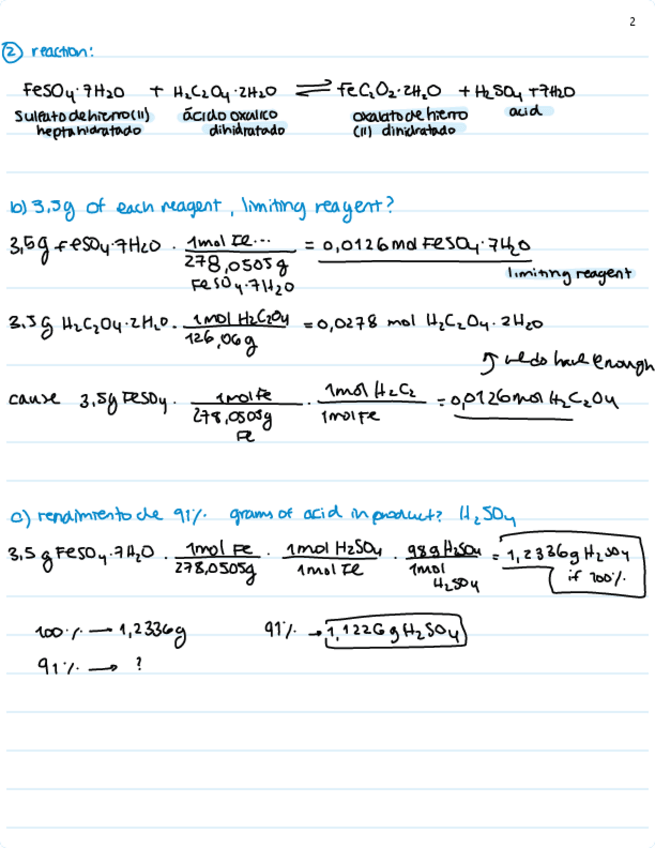 2
② reaction:
FeSO₄·7H₂O + H₂C₂O₄·2H₂O ⇌ FeC₂O₂·2H₂O + H₂SO₄ + 7H₂O
Sulfato de hierro (II) heptahidratado
ácido oxalico dihidratado
oxalato de hierro (II) dihidratado
acid
b) 3,5g of each reagent, limiting reagent?
3,5g FeSO₄·7H₂O · 1mol Fe... / 278,0505g FeSO₄·7H₂O = 0,0126 mol FeSO₄·7H₂O
limiting reagent
3.5g H₂C₂O₄·2H₂O · 1mol H₂C₂O₄ / 126,06g = 0,0278 mol H₂C₂O₄·2H₂O
↑ we do have enough
cause 3,5g FeSO₄ · 1mol Fe / 278,0505g Fe · 1mol H₂C₂ / 1mol Fe = 0,0126 mol H₂C₂O₄
c) rendimiento de 91%. grams of acid in product? H₂SO₄
3.5 g FeSO₄·7H₂O · 1mol Fe / 278,0505g · 1mol H₂SO₄ / 1mol Fe · 98g H₂SO₄ / 1mol H₂SO₄ = 1,2336g H₂SO₄
if 100%.
100% → 1,2336g 91% → 1,1226 g H₂SO₄
91% → ?